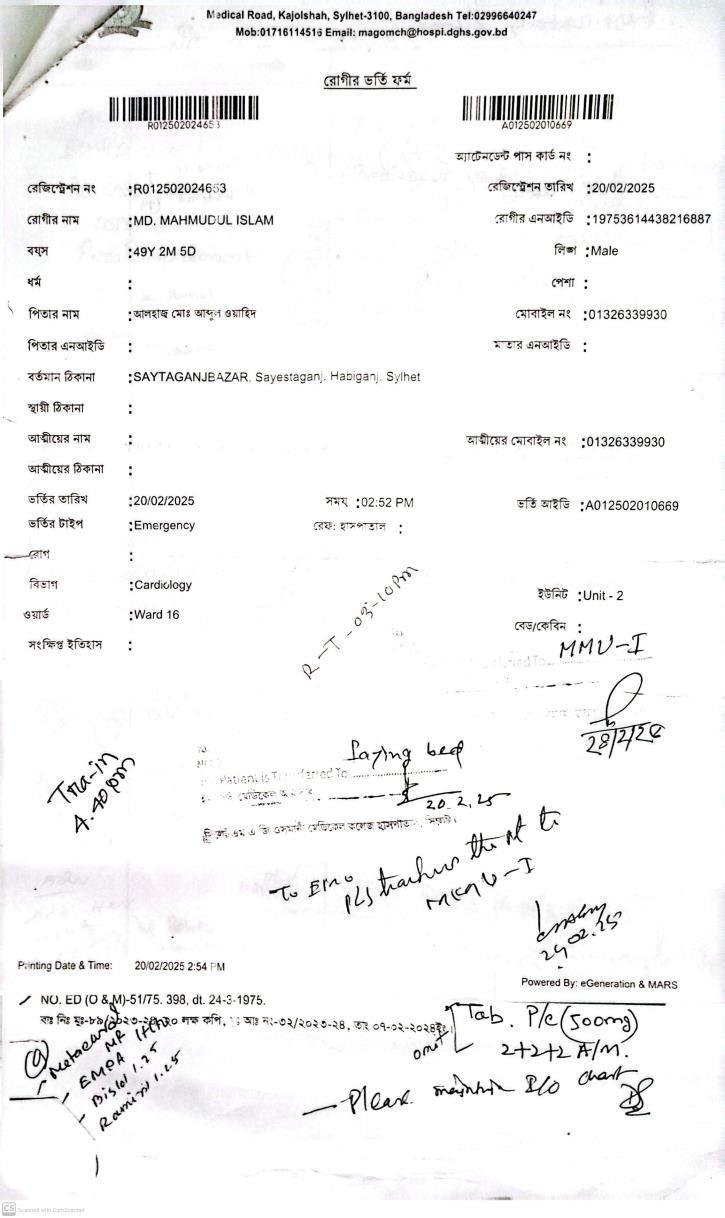 Medical Road, Kajolshah, Sylhet-3100, Bangladesh Tel:02996640247
Mob:01716114516 Email: magomch@hospi.dghs.gov.bd
রোগীর ভর্তি ফর্ম
R012502024653 A012502010669
অ্যাটেনডেন্ট পাস কার্ড নং :
রেজিস্ট্রেশন নং :R012502024653 রেজিস্ট্রেশন তারিখ :20/02/2025
রোগীর নাম :MD. MAHMUDUL ISLAM রোগীর এনআইডি :19753614438216887
বয়স :49Y 2M 5D লিঙ্গ :Male
ধর্ম : পেশা :
পিতার নাম :আলহাজ মোঃ আব্দুল ওয়াহিদ মোবাইল নং :01326339930
পিতার এনআইডি : মাতার এনআইডি :
বর্তমান ঠিকানা :SAYTAGANJBAZAR, Sayestaganj, Habiganj, Sylhet
স্থায়ী ঠিকানা :
আত্মীয়ের নাম : আত্মীয়ের মোবাইল নং :01326339930
আত্মীয়ের ঠিকানা :
ভর্তির তারিখ :20/02/2025 সময় :02:52 PM ভর্তি আইডি :A012502010669
ভর্তির টাইপ :Emergency রেফ: হাসপাতাল :
রোগ :
বিভাগ :Cardiology ইউনিট :Unit - 2
ওয়ার্ড :Ward 16 বেড/কেবিন :
সংক্ষিপ্ত ইতিহাস :
R-T-03-10pm
MMU-I
Patient is Transferred To
20.2.25
এম এ জি ওসমানী মেডিকেল কলেজ হাসপাতাল, সিলেট।
pm
To EMO
pt to
Printing Date & Time: 20/02/2025 2:54 PM
Powered By: eGeneration & MARS
NO. ED (O & M)-51/75. 398, dt. 24-3-1975.
Tab. P/c (500mg)
omit
2+2+2 A/M.
MR
EMPA
1.25
1.25
Please maintain I/O chart
CS Scanned with CamScanner